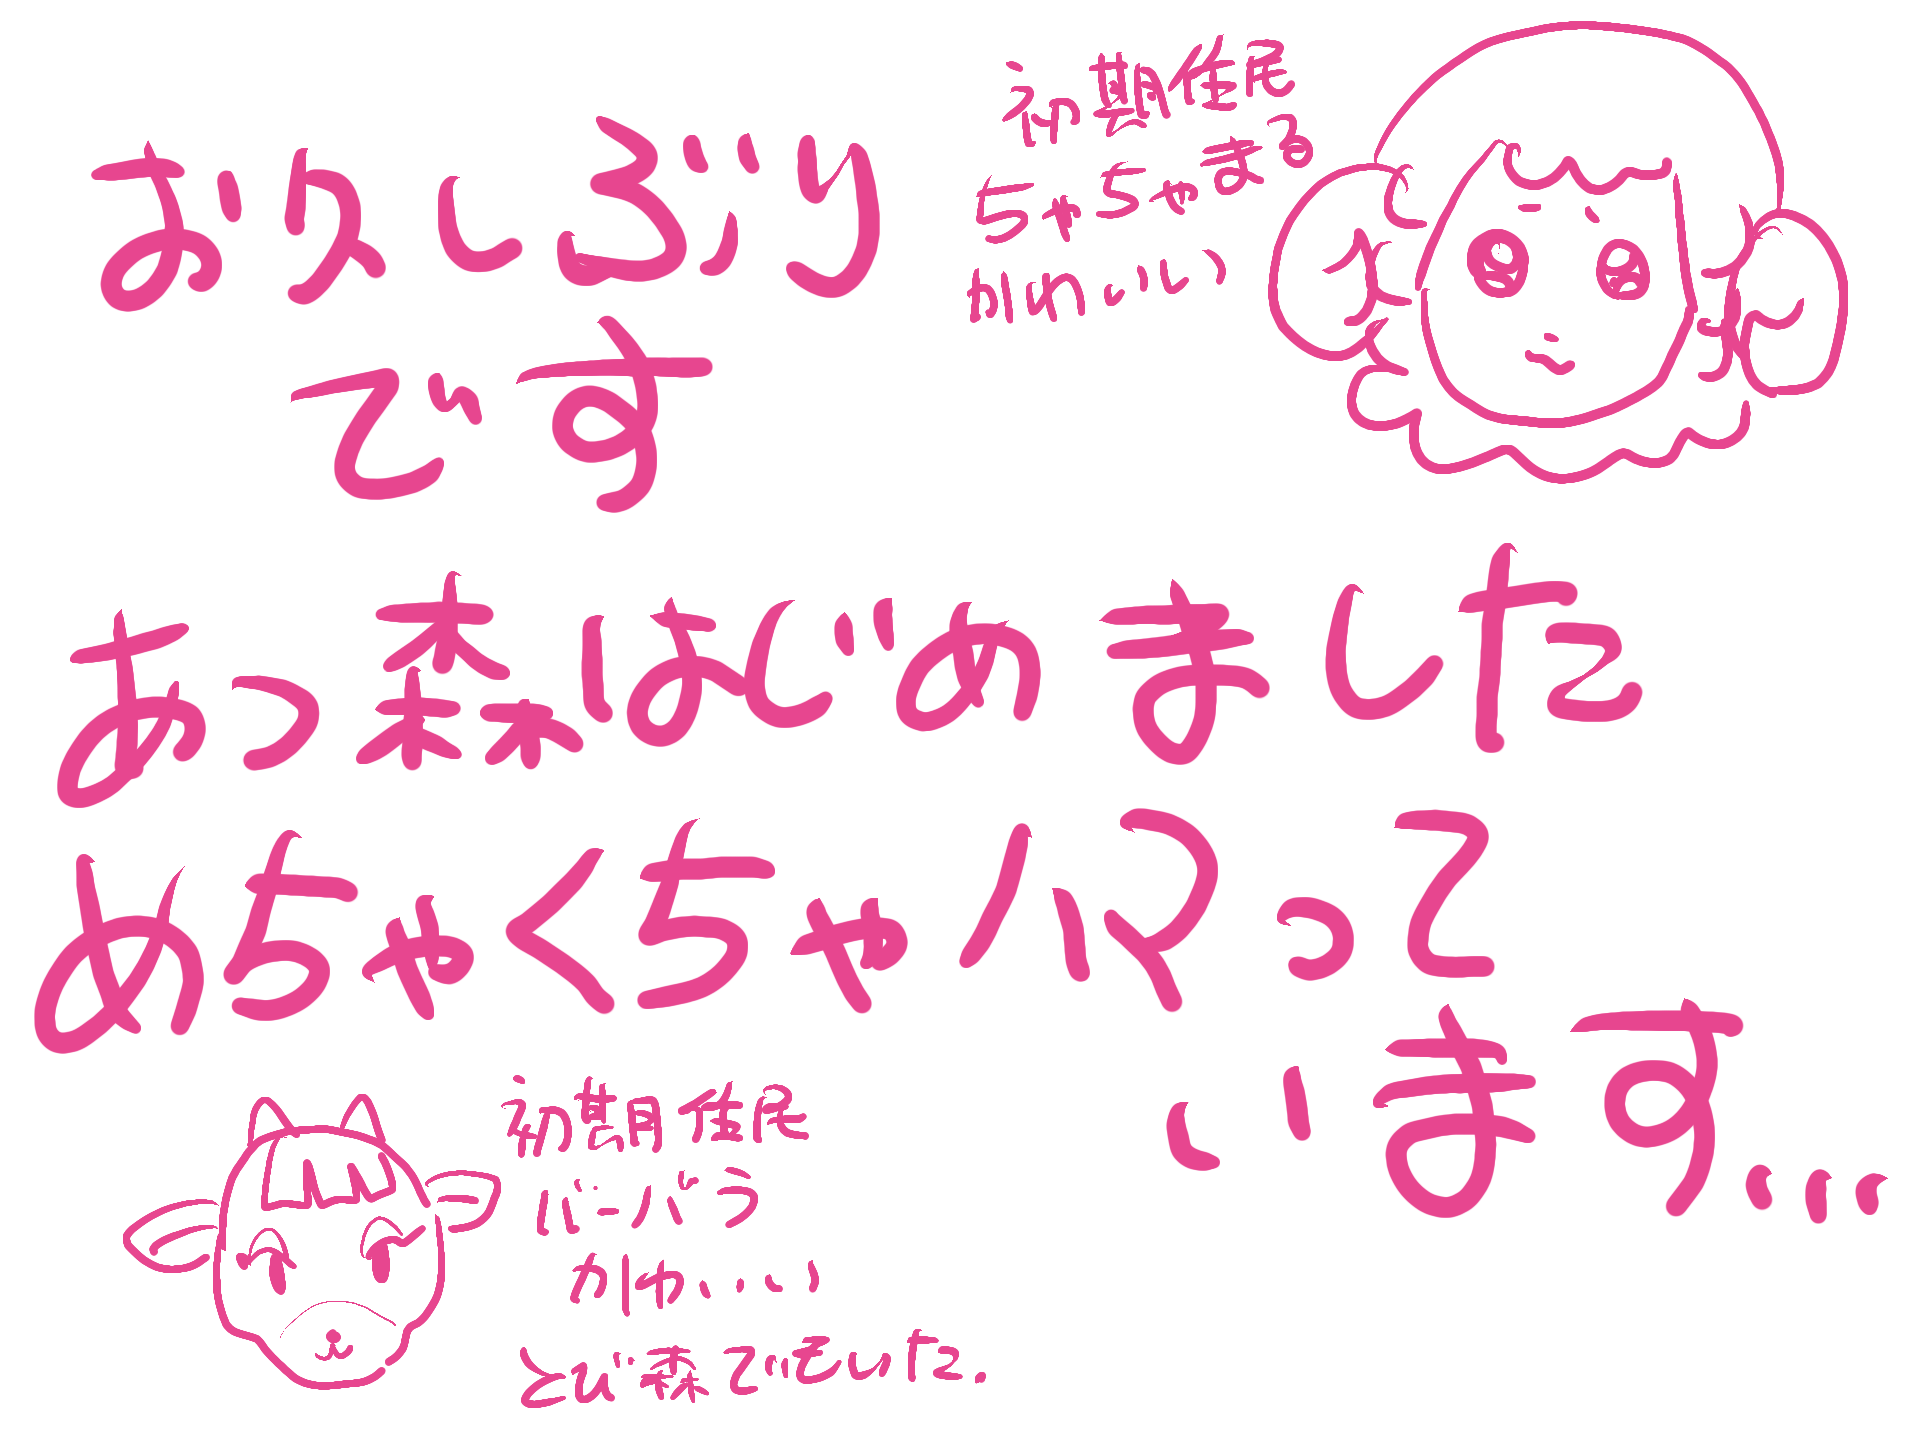 お久しぶり
です
初期住民
ちゃちゃまる
かわいい
あっ森はじめました
めちゃくちゃハマって
います...
初期住民
バーバラ
かわいい
とび森でもいた.